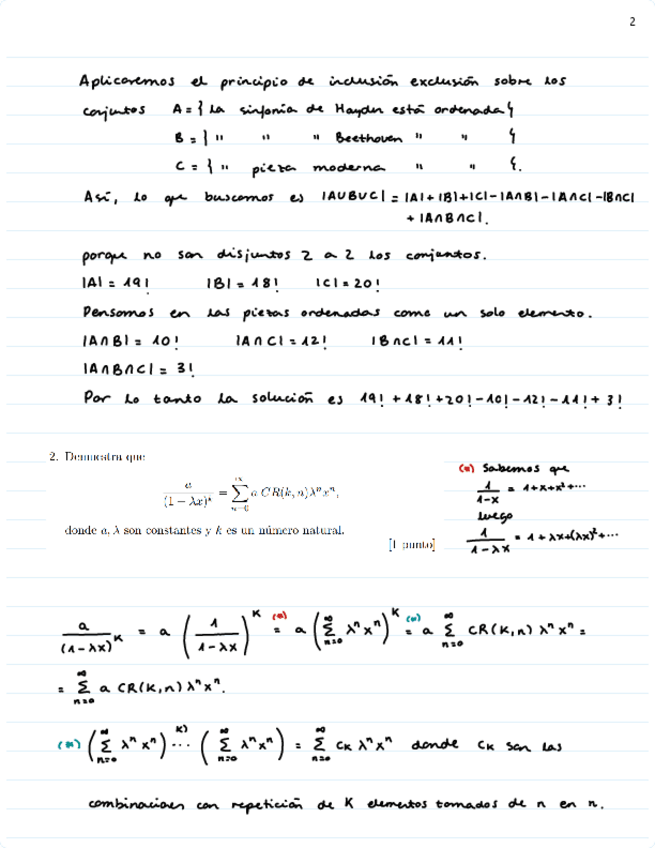 2
Aplicaremos el principio de inclusión exclusión sobre los
conjuntos A = { La sinfonía de Haydn está ordenada }
B = { " " " Beethoven " " }
C = { " pieza moderna " " }.
Así, lo que buscamos es |A∪B∪C| = |A|+|B|+|C|-|A∩B|-|A∩C|-|B∩C|
+ |A∩B∩C|.
porque no son disjuntos 2 a 2 los conjuntos.
|A| = 19! |B| = 18! |C| = 20!
Pensamos en las piezas ordenadas como un solo elemento.
|A∩B| = 10! |A∩C| = 12! |B∩C| = 11!
|A∩B∩C| = 3!
Por lo tanto la solución es 19! + 18! + 20! - 10! - 12! - 11! + 3!
2. Demuestra que
a/(1 − λx)^k = ∑_{n=0}^{∞} a CR(k, n)λ^n x^n,
donde a, λ son constantes y k es un número natural.
[1 punto]
(*) Sabemos que
1/(1-x) = 1+x+x²+...
luego
1/(1-λx) = 1+λx+(λx)²+...
a/(1-λx)^K = a (1/(1-λx))^K (*)= a (∑_{n=0}^{∞} λ^n x^n)^K (*)= a ∑_{n=0}^{∞} CR(K,n) λ^n x^n =
= ∑_{n=0}^{∞} a CR(K,n) λ^n x^n.
(*) (∑_{n=0}^{∞} λ^n x^n) K)... (∑_{n=0}^{∞} λ^n x^n) = ∑_{n=0}^{∞} CK λ^n x^n donde CK son las
combinaciones con repetición de K elementos tomados de n en n.